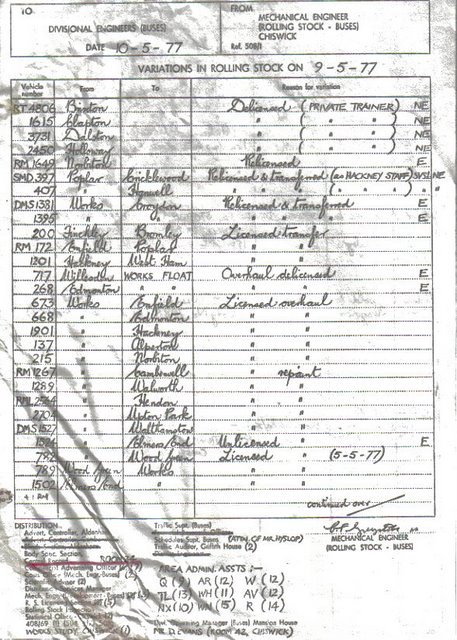 TO
DIVISIONAL ENGINEERS (BUSES)
DATE 10-5-77
FROM
MECHANICAL ENGINEER
(ROLLING STOCK - BUSES)
CHISWICK
Ref. 508/1
VARIATIONS IN ROLLING STOCK ON 9-5-77
Vehicle number From To Reason for variation
RT 4806 Brixton Delicensed (PRIVATE TRAINER) NE
1615 Clapton " " ( " " ) NE
3731 Dalston " " ( " " ) NE
2450 Holloway " " ( " " ) NE
RM 1649 Norbiton Relicensed E
SMD 397 Poplar Cricklewood Relicensed & transferred (as HACKNEY STAFF) SVS LNE
407 " Hanwell " " " ( " " ) "
DMS 1381 Works Croydon Relicensed & transferred E
1395 " " " " E
200 Finchley Bromley Licensed transfer
RM 172 Enfield Poplar " "
1201 Hackney West Ham " "
717 Willesden WORKS FLOAT Overhaul delicensed E
268 Edmonton " " " E
673 Works Enfield Licensed overhaul
668 " Edmonton " "
1901 " Hackney " "
137 " Alperton " "
215 " Norbiton " "
RM 1267 " Camberwell " repaint
1289 " Walworth " "
RML 2564 " Hendon " "
2704 " Upton Park " "
DMS 1527 " Walthamstow " "
1524 " Elmers End Unlicensed " E
782 " Wood Green Licensed " (5-5-77)
789 Wood Green Works " "
1502 Elmers End " " "
continued over
DISTRIBUTION
Advert. Controller, Aldenham
Body Spec. Section
ROOM 52
Commercial Advertising Officer
Scientific Adviser (2)
Distribution Services Manager
R. S. Licensing Section
Rolling Stock
Statistical Office
WORKS STUDY
Traffic Supt. (Buses)
Schedules Supt. Buses (ATTN. OF MR. HYSLOP)
Traffic Auditor, Griffith House (2)
AREA ADMIN. ASSTS :-
Q (9) AR (12) W (12)
TL (13) WH (11) AV (12)
NX (10) WN (15) R (14)
Operating Manager (Buses) Mission House
MR. D. EVANS (ROOM 42, CHISWICK)
MECHANICAL ENGINEER
(ROLLING STOCK - BUSES)